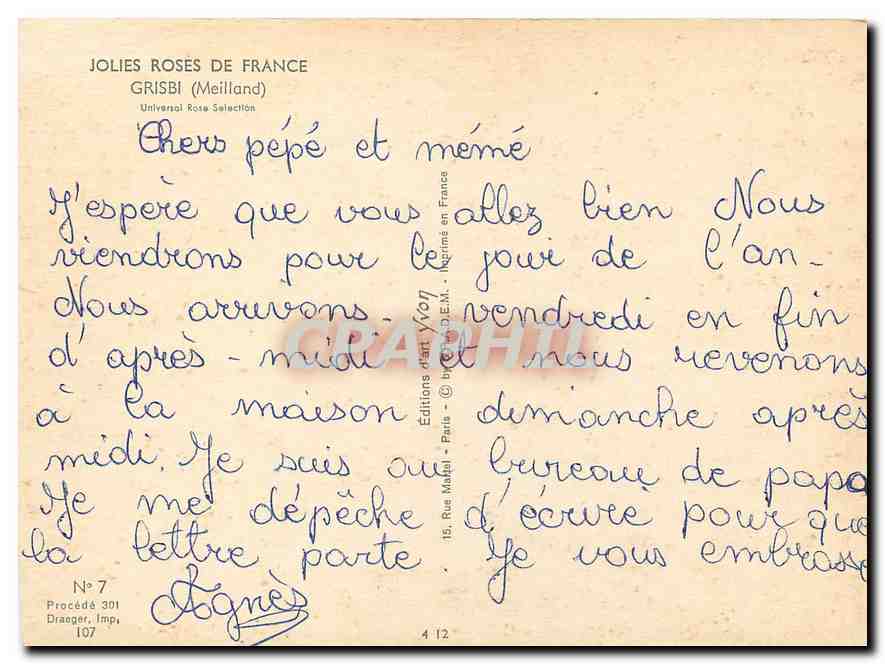 JOLIES ROSES DE FRANCE
GRISBI (Meilland)
Universal Rose Selection
Chers pépé et mémé
J'espère que vous allez bien Nous
viendrons pour le jour de l'an_
Nous arrivons_ vendredi en fin
d'après-midi et nous revenons
à la maison dimanche après
midi. Je suis au bureau de papa
Je me dépêche d'écrire pour que
la lettre parte. Je vous embrasse
Agnès
N° 7
Procédé 301
Draeger, Imp.
107
4 12
Éditions d'art yvon
15, Rue Martel - Paris - © by D.E.M. - Imprimé en France
CPAPHIL